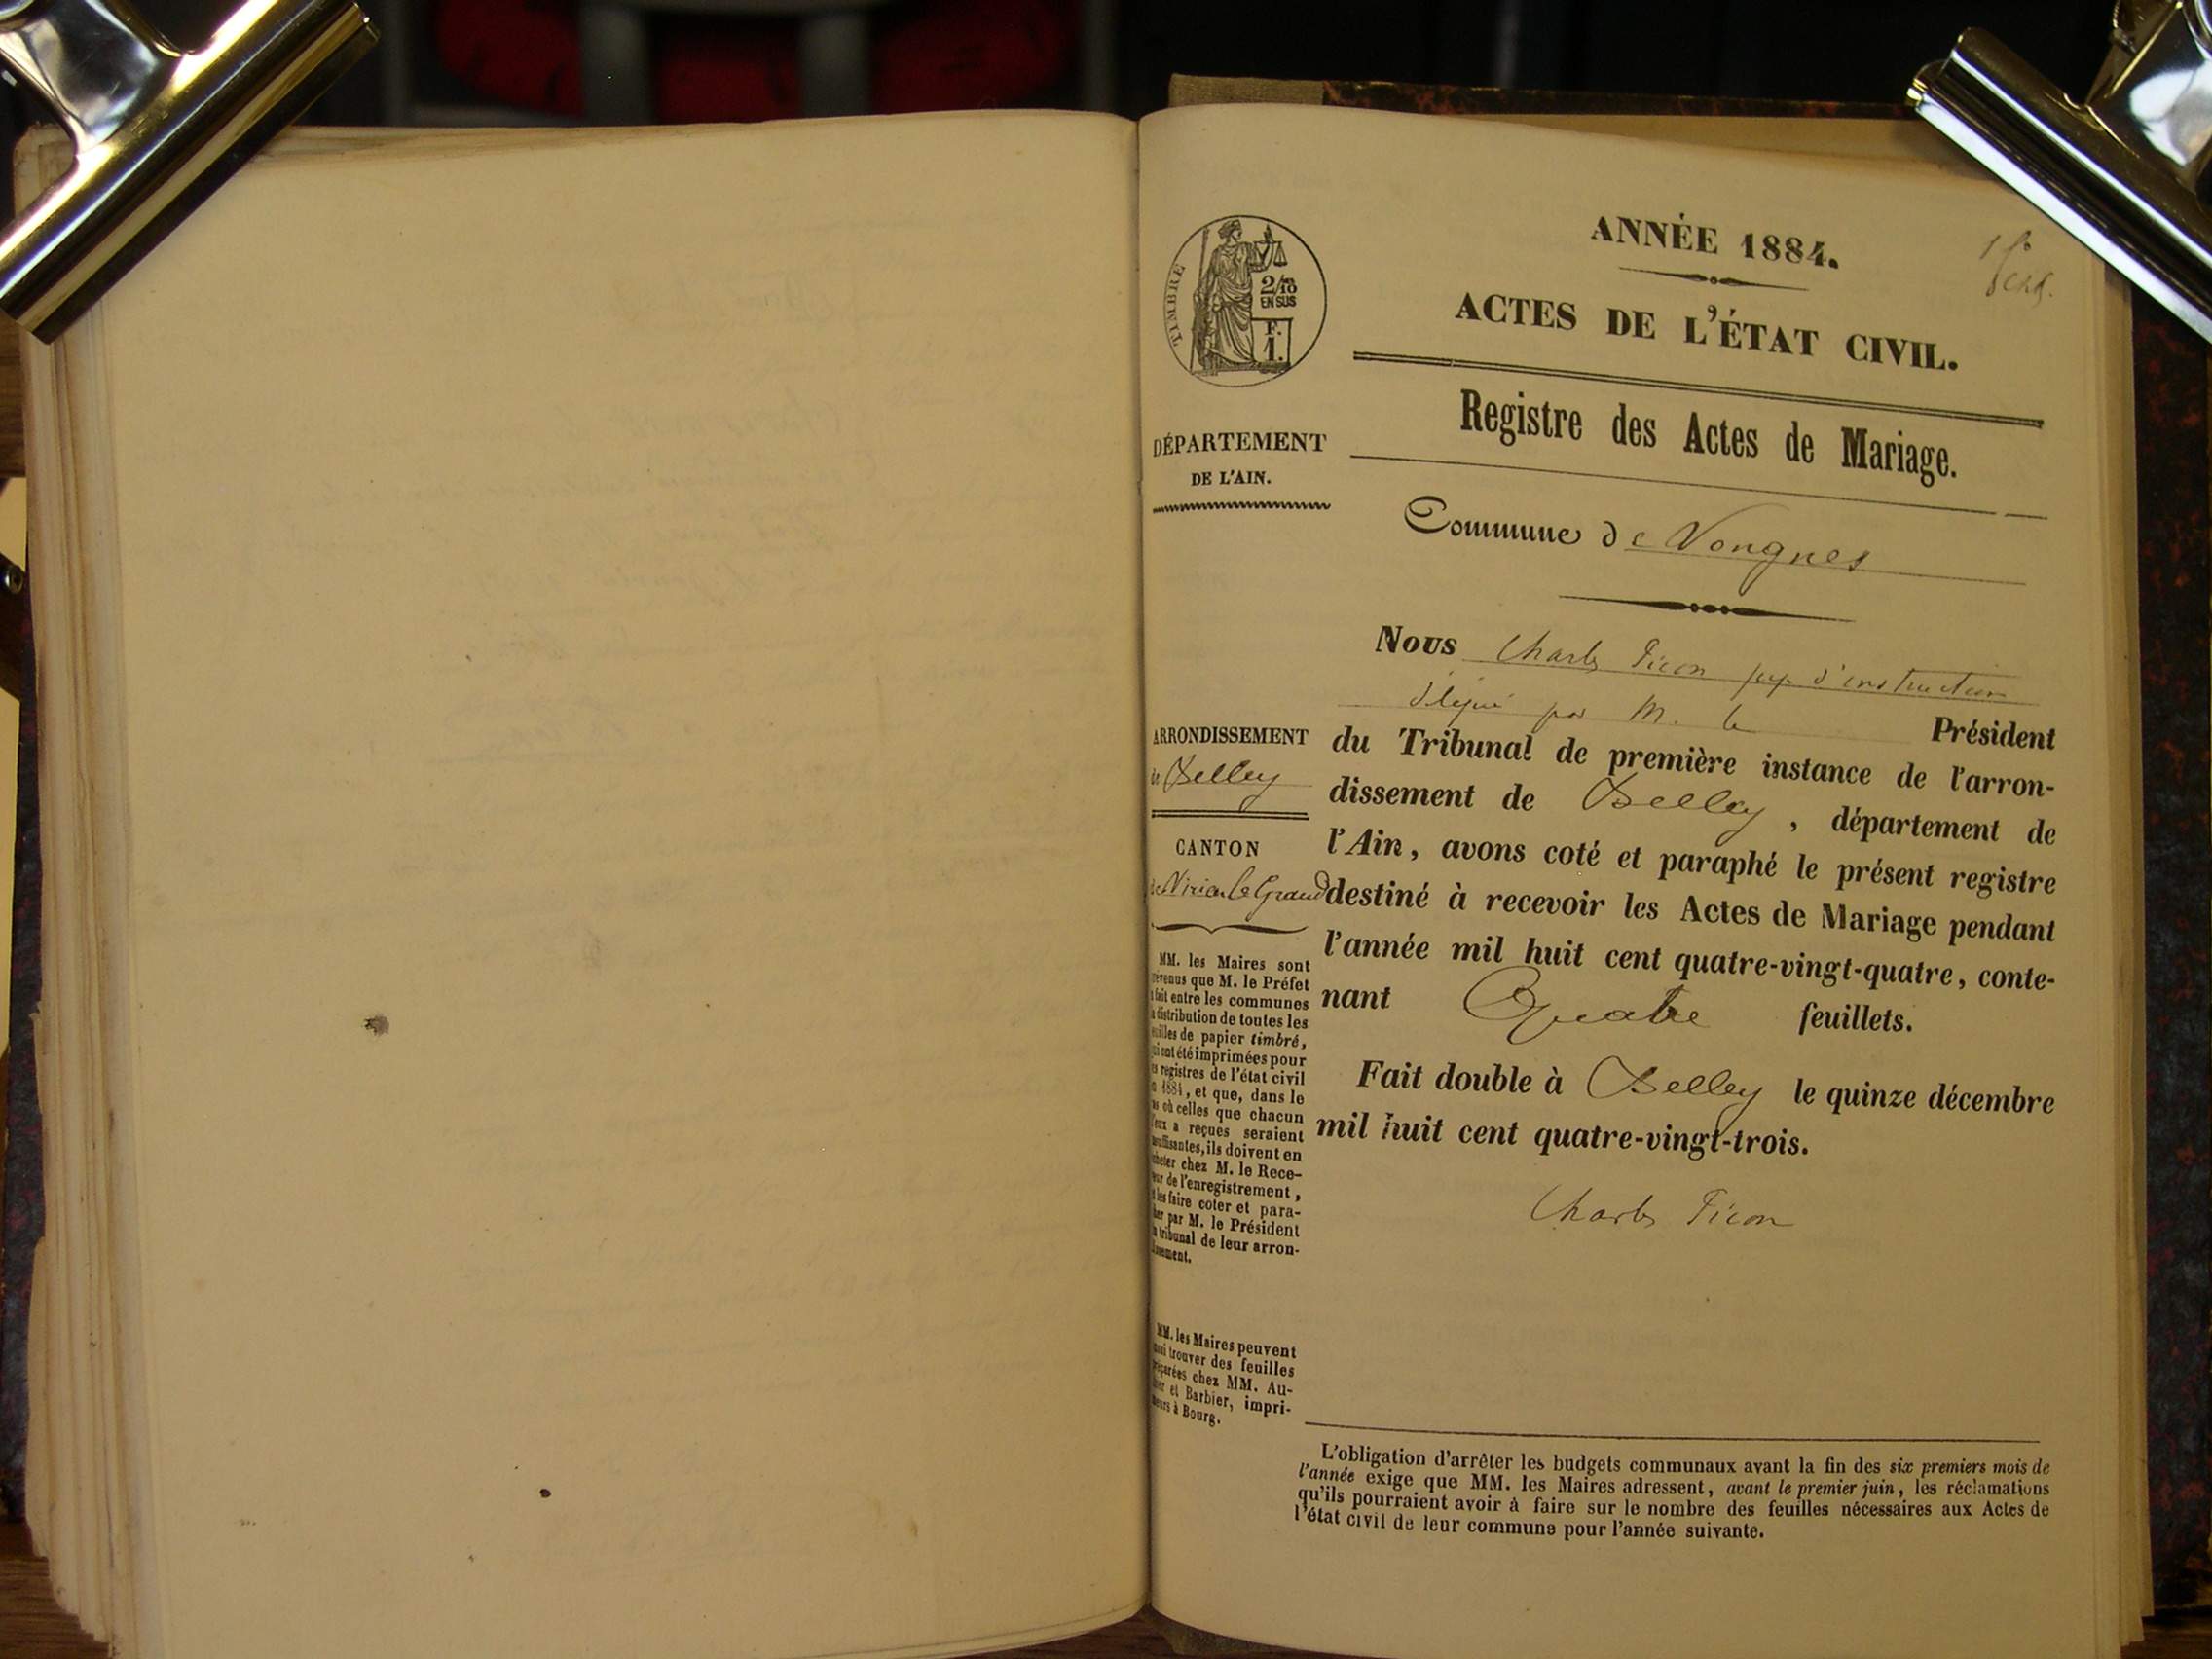 ANNÉE 1884.
ACTES DE L'ÉTAT CIVIL.
Registre des Actes de Mariage.
Commune de Vongnes
Nous Charles Picon juge d'instruction
délégué par M. le Président
du Tribunal de première instance de l'arron-
dissement de Belley, département de
l'Ain, avons coté et paraphé le présent registre
destiné à recevoir les Actes de Mariage pendant
l'année mil huit cent quatre-vingt-quatre, conte-
nant Quatre feuillets.
Fait double à Belley le quinze décembre
mil huit cent quatre-vingt-trois.
Charles Picon
TIMBRE
2/10
EN SUS
F.
1.
DÉPARTEMENT
DE L'AIN.
ARRONDISSEMENT
de Belley
CANTON
de Virieu le Grand
MM. les Maires sont
que M. le Préfet
fait entre les communes
distribution de toutes les
de papier timbré,
ont été imprimées pour
registres de l'état civil
1884, et que, dans le
où celles que chacun
a reçues seraient
ils doivent en
chez M. le Rece-
de l'enregistrement,
les faire coter et para-
par M. le Président
tribunal de leur arron-
MM. les Maires peuvent
trouver des feuilles
chez MM. Au-
et Barbier, impri-
à Bourg.
L'obligation d'arrêter les budgets communaux avant la fin des six premiers mois de
l'année exige que MM. les Maires adressent, avant le premier juin, les réclamations
qu'ils pourraient avoir à faire sur le nombre des feuilles nécessaires aux Actes de
l'état civil de leur commune pour l'année suivante.